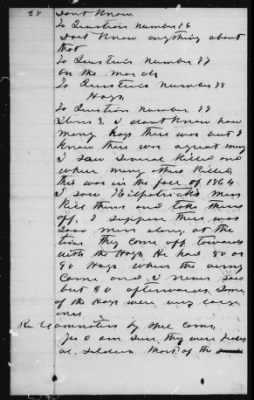 28 Dont Know
To Question Number 86
Dont Know anything about
that
To Question Number 87
On the March
To Question Number 88
Hogs
To Question Number 88
Item 3, I dont Know how
many hogs there was but I
Know there was a great many
I saw several Killed and
where many others Killed,
this was in the fall of 1864.
I saw Kilpatricks men
Kill them and take them
off. I suppose there was
2000 men along at the
time they come off towards
with the Hogs He had 80 or
90 Hogs when the army
Came and I never saw
but 30 afterwards, some
of the Hogs were very large
ones
Re Examination by Spec Com,
Yes I am sure they were
soldiers Most of the